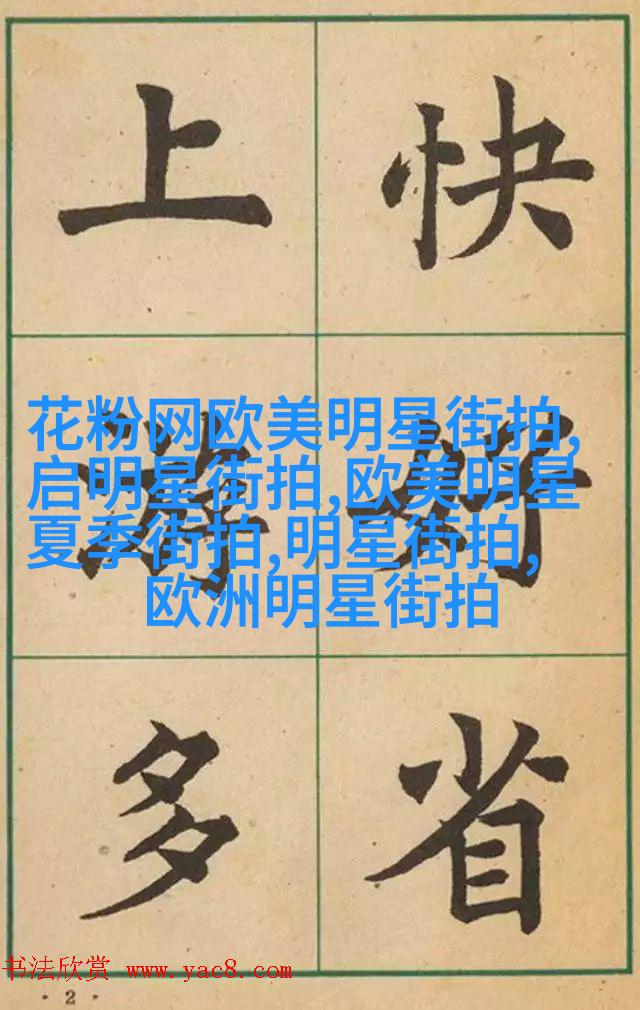 上游多
快好省
花粉网欧美明星街拍,
启明星街拍,欧美明星
夏季街拍,明星街拍,
欧洲明星街拍
书法欣赏 www.yac8.com
·2·